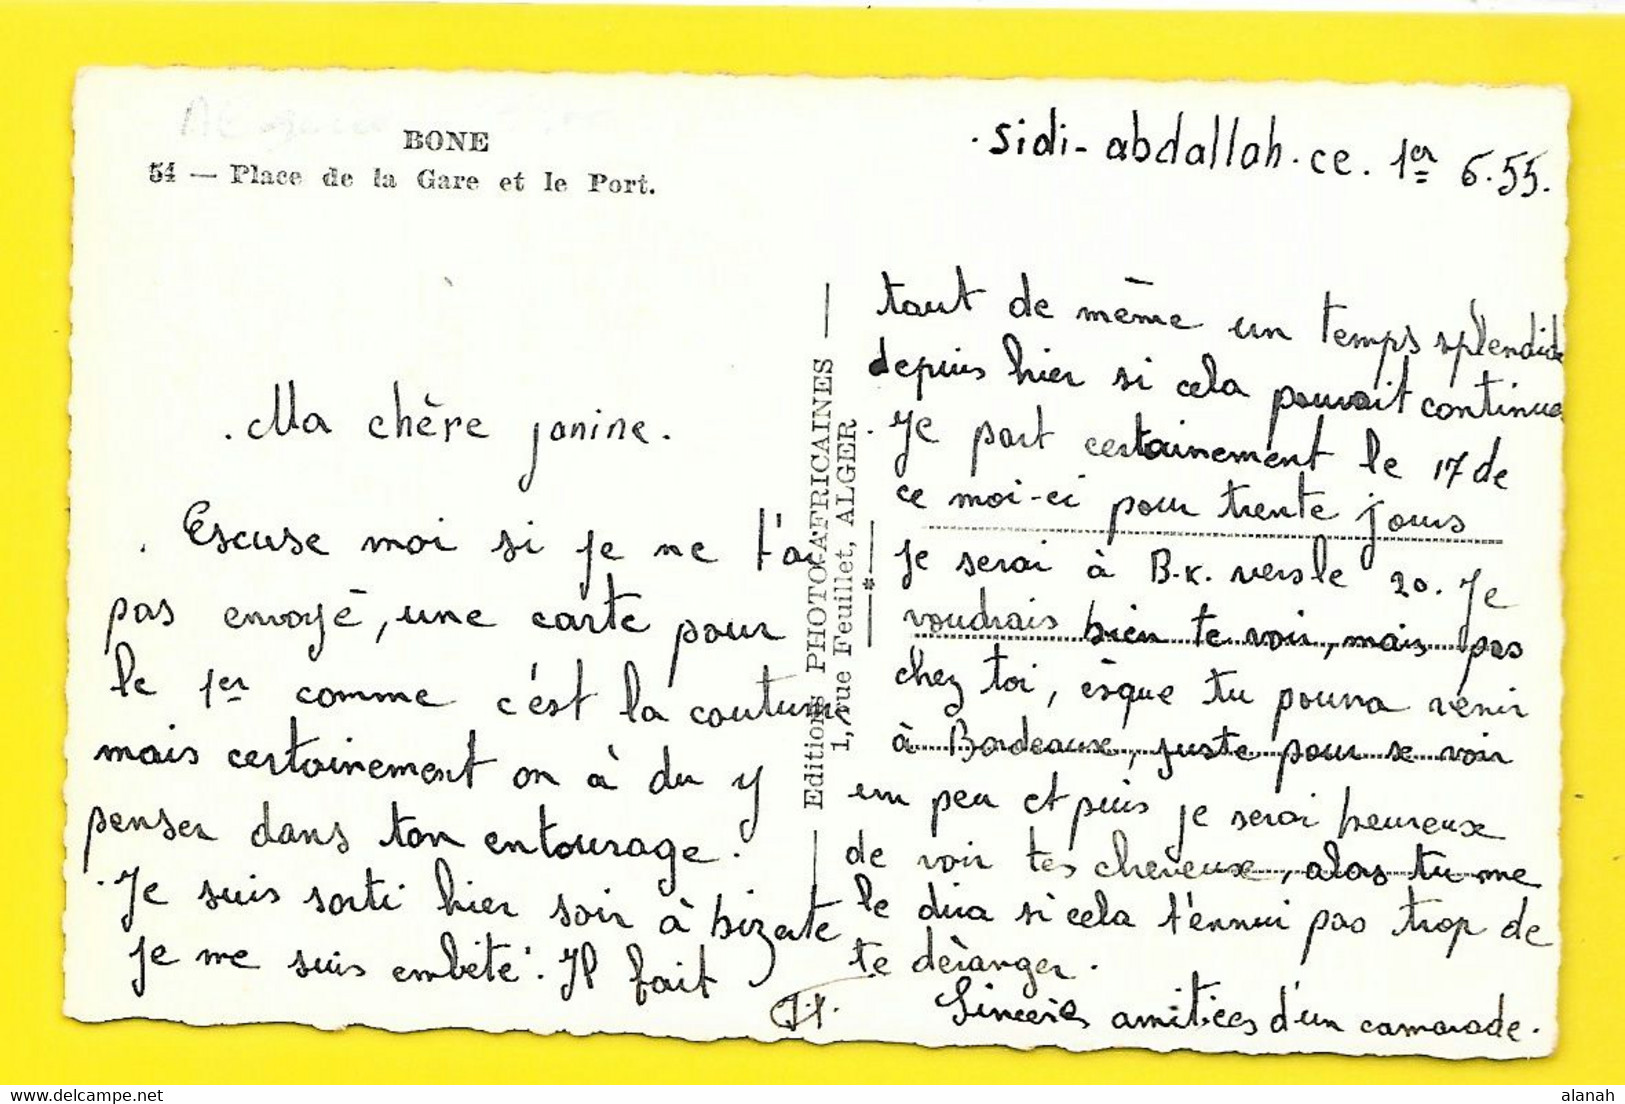 BONE
54 — Place de la Gare et le Port.
. sidi-abdallah. ce. 1er 6.55.
. Ma chère janine.
. Escuse moi si je ne t'ai
pas envoyé, une carte pour
le 1er comme c'est la coutume
mais certainement on à du y
penser dans ton entourage.
. Je suis sorti hier soir à bizerte
je me suis embêté. Il fait
Editions PHOTO-AFRICAINES
1, rue Feuillet, ALGER
tout de même un temps splendide
depuis hier si cela pouvait continuer
. Je part certainement le 17 de
ce moi-ci pour trente jours
je serai à B.K. vers le 20. Je
voudrais bien te voir, mais pas
chez toi, èsque tu pourra venir
à Bordeaux, juste pour se voir
un peu et puis je serai heureux
de voir tes cheveux, alors tu me
le dira si cela t'ennui pas trop de
te déranger.
Sincères amitiées d'un camarade.
alanah